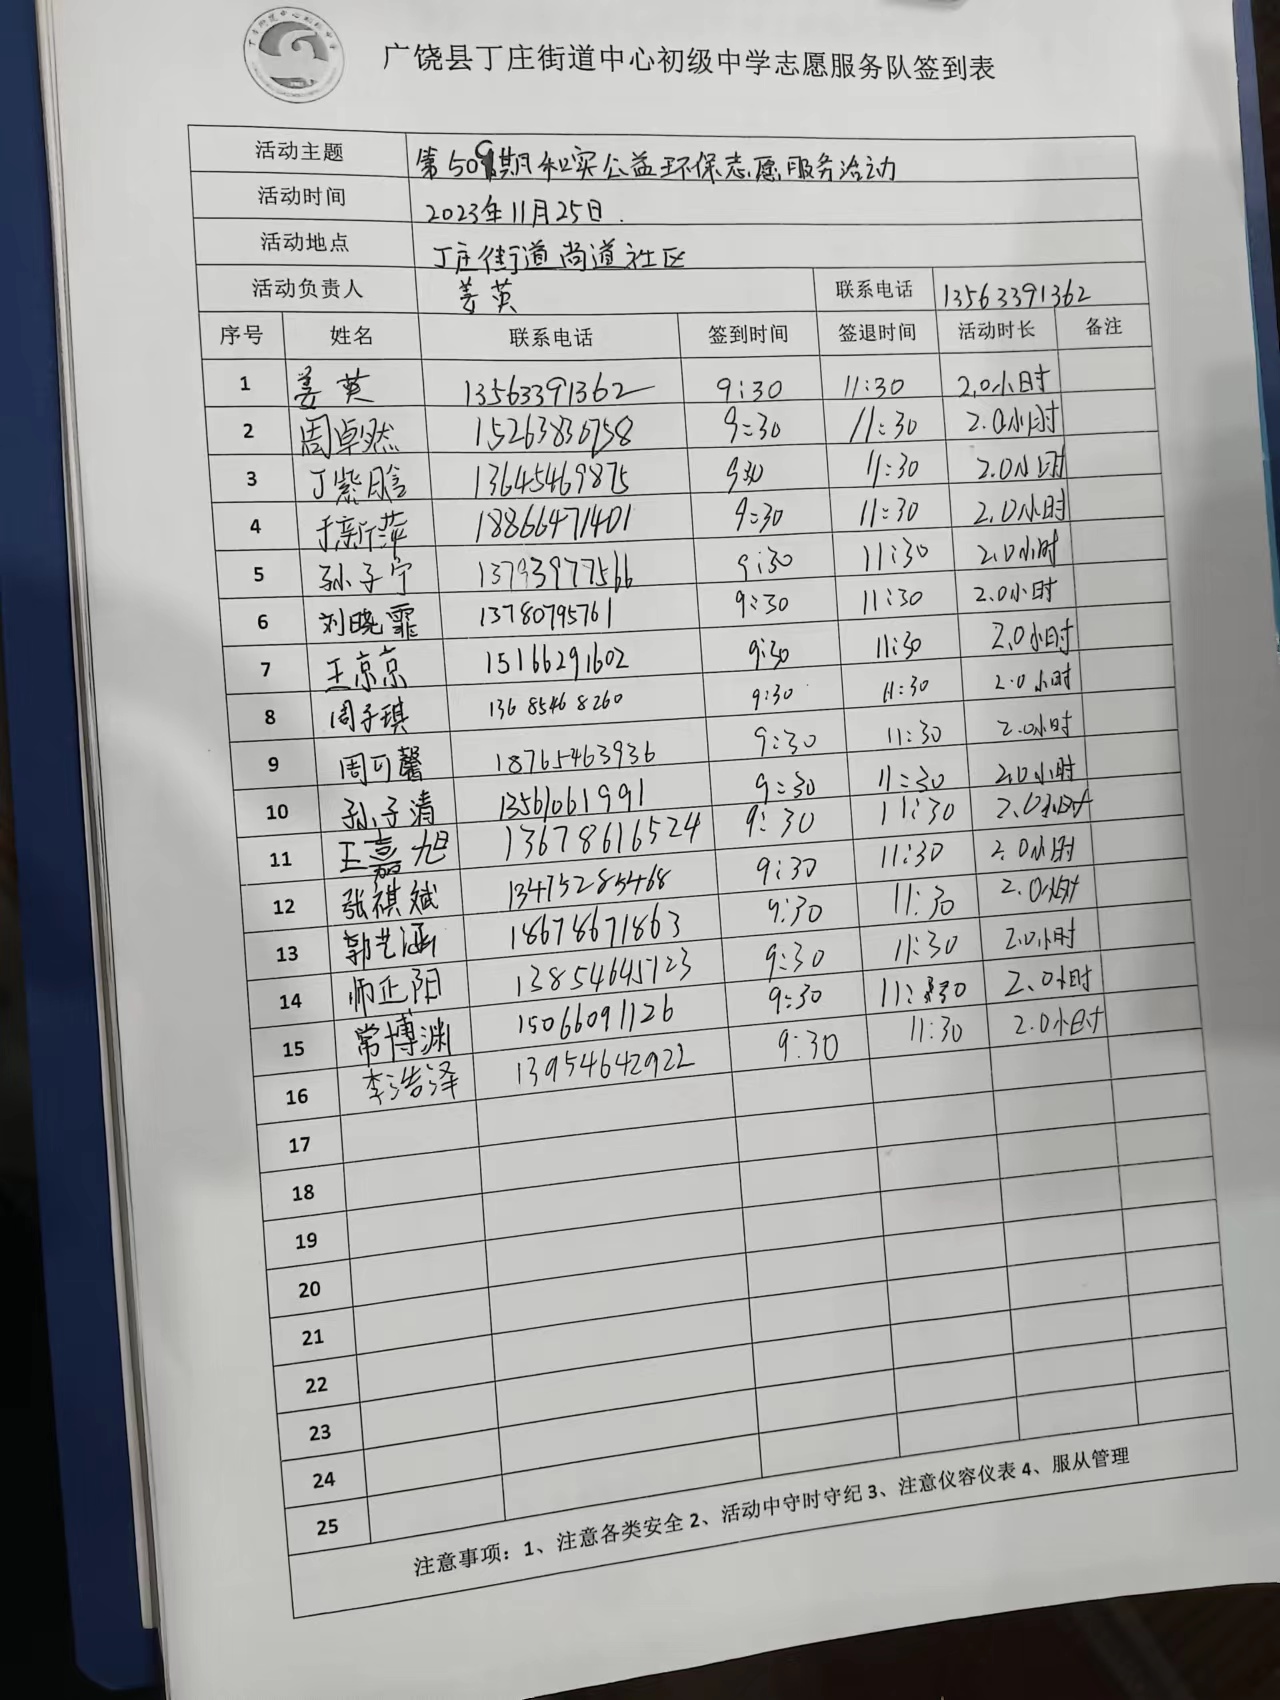 广饶县丁庄街道中心初级中学志愿服务队签到表
活动主题 第509期和实公益环保志愿服务活动
活动时间 2023年11月25日.
活动地点 丁庄街道尚道社区
活动负责人 姜英 联系电话 13563391362
序号 姓名 联系电话 签到时间 签退时间 活动时长 备注
1 姜英 13563391362 9:30 11:30 2.0小时
2 周卓然 15263830758 9:30 11:30 2.0小时
3 丁紫晗 13645469875 9:30 11:30 2.0小时
4 于新萍 18866471401 9:30 11:30 2.0小时
5 孙子宁 13793977566 9:30 11:30 2.0小时
6 刘晓霏 13780795761 9:30 11:30 2.0小时
7 王京京 15166291602 9:30 11:30 2.0小时
8 周子琪 13685468260 9:30 11:30 2.0小时
9 周可馨 18765463936 9:30 11:30 2.0小时
10 孙子清 13561061991 9:30 11:30 2.0小时
11 王嘉旭 13678616524 9:30 11:30 2.0小时
12 张祺斌 13475285468 9:30 11:30 2.0小时
13 郭艺涵 18678671863 9:30 11:30 2.0小时
14 师正阳 13854645123 9:30 11:30 2.0小时
15 常博渊 15066091126 9:30 11:30 2.0小时
16 李浩泽 13954642922 9:30 11:30 2.0小时
17
18
19
20
21
22
23
24
25
注意事项：1、注意各类安全 2、活动中守时守纪 3、注意仪容仪表 4、服从管理